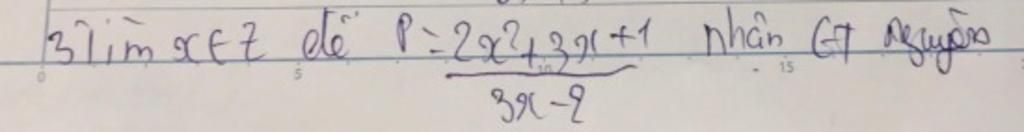 3 Tìm x ∈ Z để P = (2x²+3x+1)/(3x-2) nhân GT nguyên
0 5 10 15